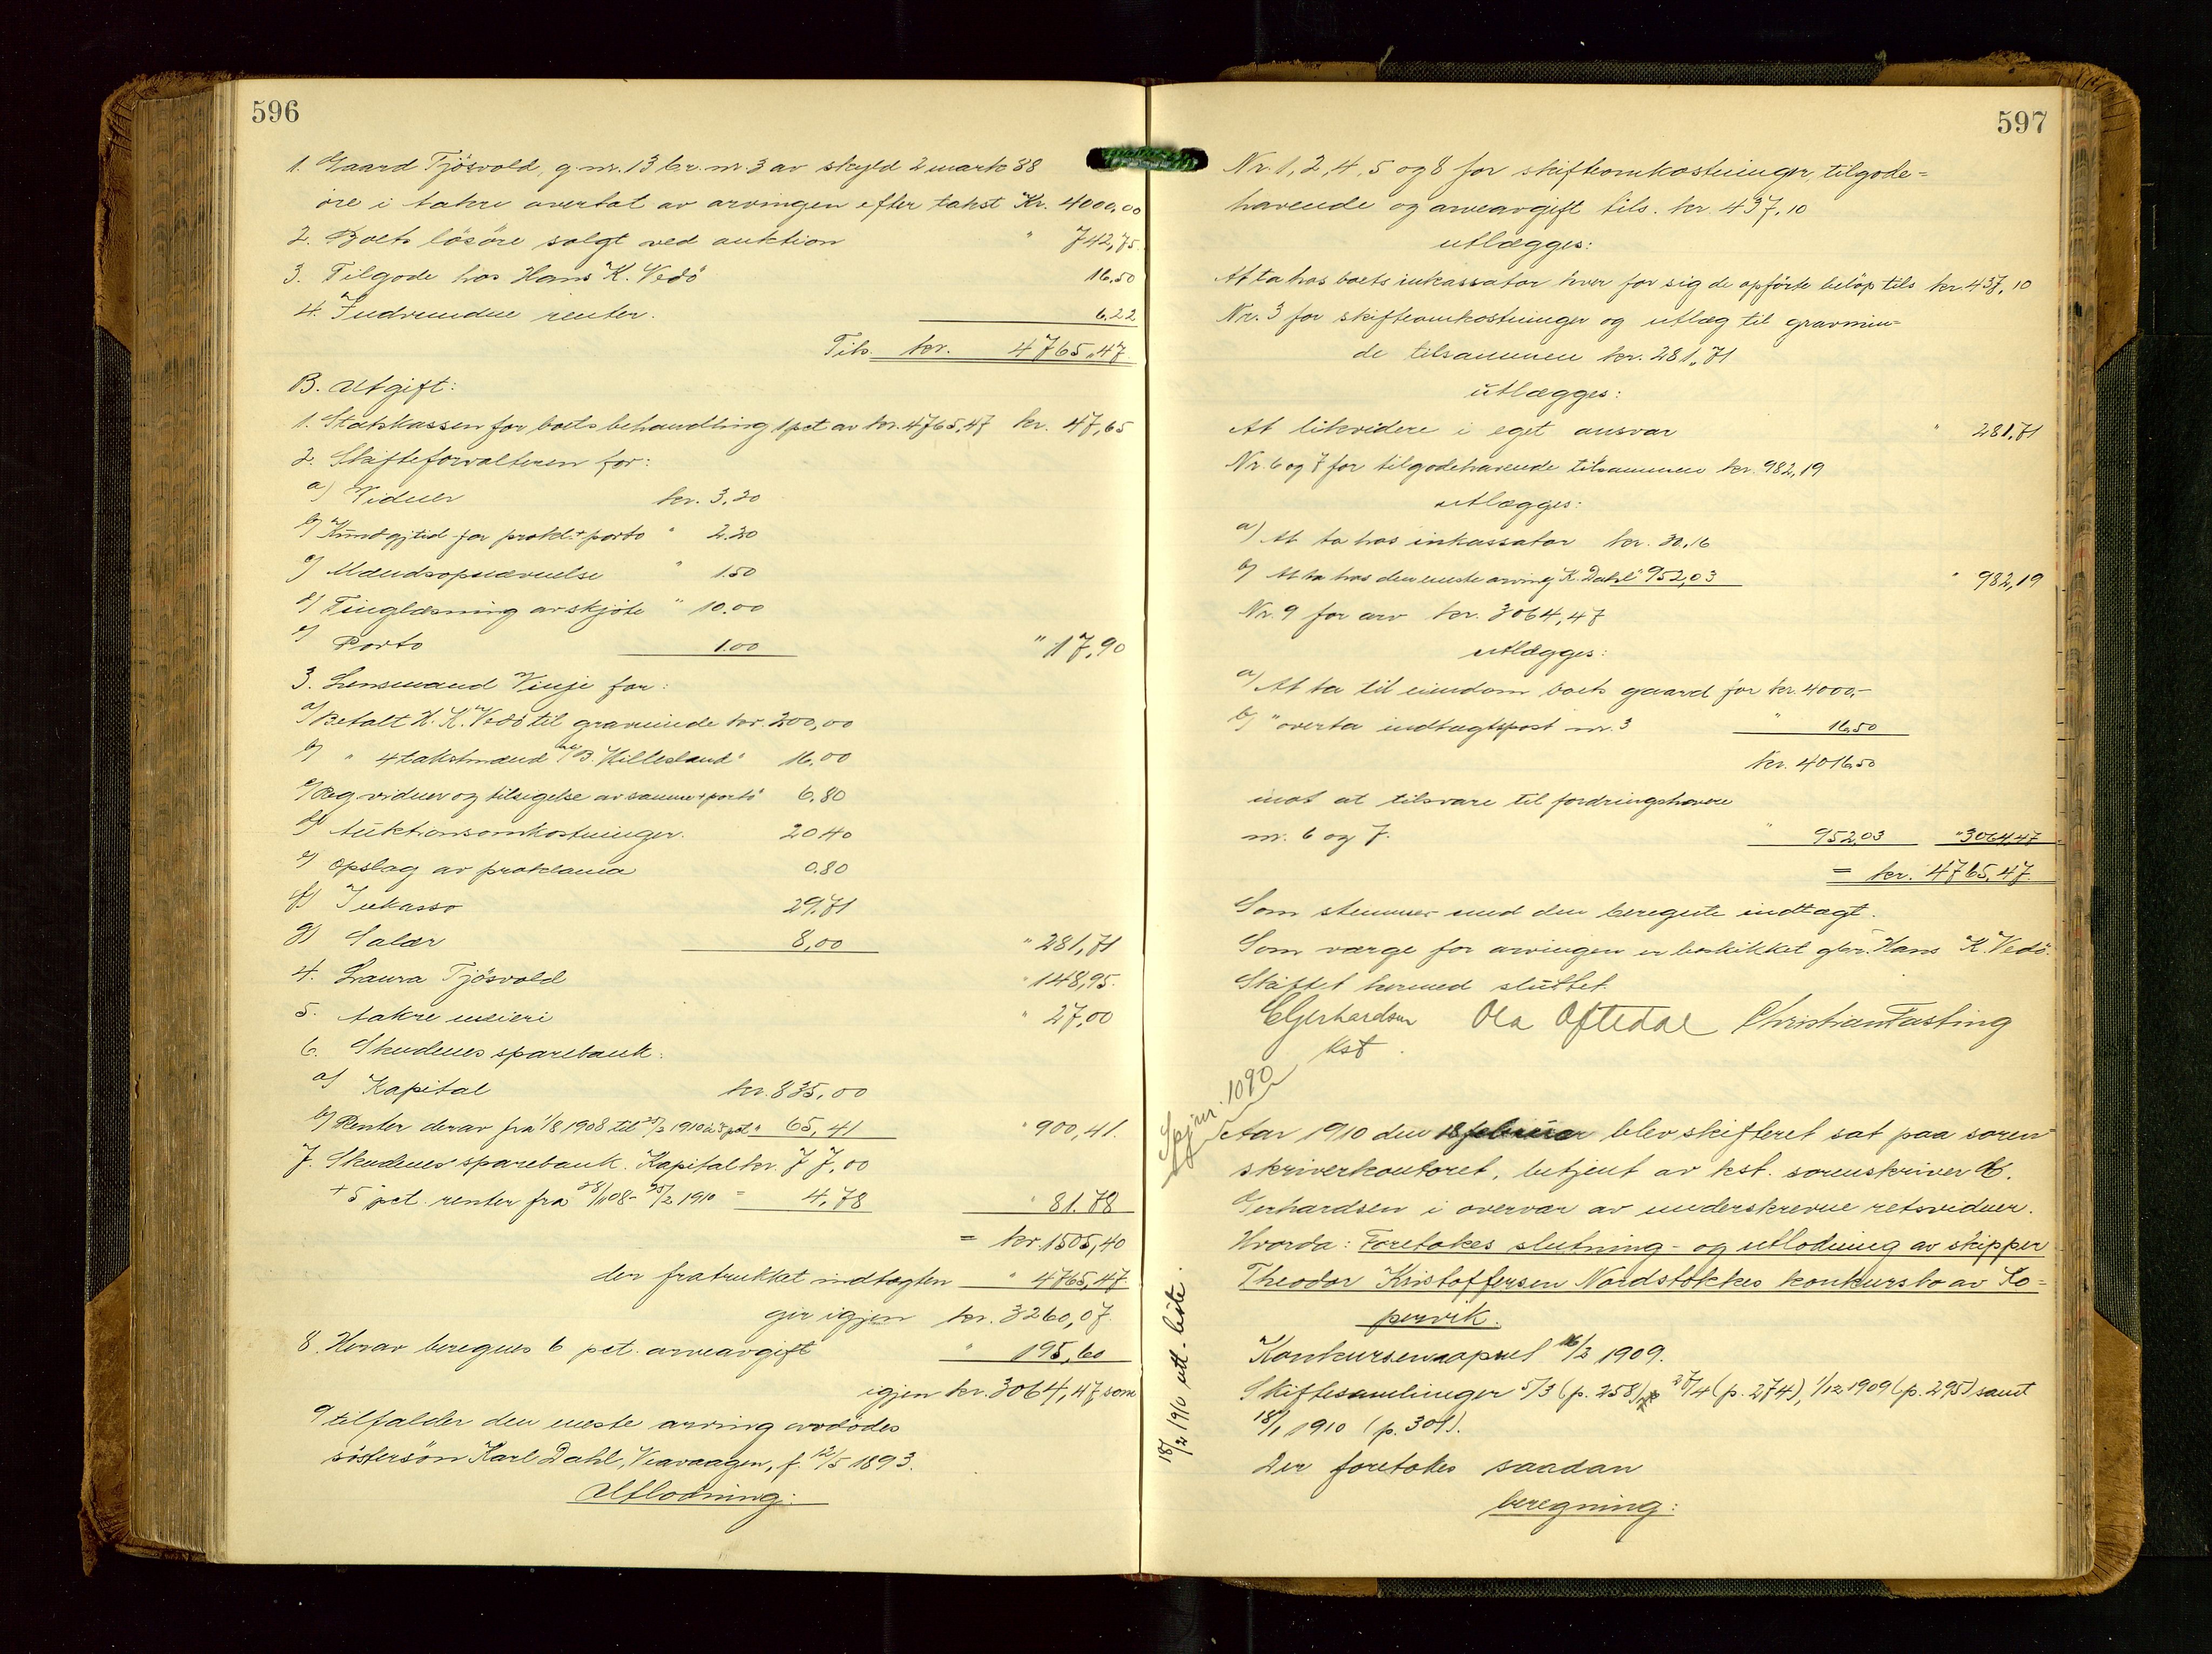 596
1. Gaard Tjösvold, g.nr. 13 br.nr 3 av skyld 2 mark 38
öre i Aakre overtat av arvingen efter takst Kr. 4000,00
2. Boets lösöre solgt ved auktion " 742,75
3. Tilgode hos Hans K. Vedö 16,50
4. Indvundne renter. 6,22
Tils. kr. 4765,47
B. Utgift:
1. Statskassen for boets behandling 1 pct av kr. 4765,47 kr. 47,65
2. Skifteforvalteren for:
a) Vidner kr. 3,20
b) Kundgj.tid. for prokl. + porto " 2.20
c) Mændsopnævnelse " 1.50
d) Tinglæsning av skjöte " 10.00
e) Porto 1.00 " 17,90
3. Lensmand Vinje for:
a) Betalt H. K. Vedö til gravminde kr. 200,00
b) " 4 takstmænd B. Hillesland " 16.00
c) Reg vidner og tilsigelse av samme + porto " 6.80
d) Auktionsomkostninger. 20.40
e) Opslag av proklama 0.80
f) Inkasso 29.71
g) Salær 8,00 " 281,71
4. Laura Tjösvold " 148,95.
5. Aakre meieri " 27,00
6. Skudenes sparebank:
a) Kapital kr. 835,00
b) Renter derav fra 1/8 1908 til 25/2 1910 à 5 pct " 65,41 " 900,41.
7. Skudenes sparebank. Kapital kr. 77,00
+ 5 pct. renter fra 28/11 08 - 25/2 1910 = 4,78 " 81.78
= kr. 1505,40
der fratrukket indtægten " 4765,47.
gir igjen kr. 3260,07.
8. Herav beregnes 6 pct. arveavgift " 195,60
igjen kr. 3064,47 som
9 tilfalder den eneste arving avdödes
söstersön Karl Dahl, Veavaagen, f. 12/5 1893.
Utlodning:
597
Nr. 1, 2, 4, 5 og 8 for skifteomkostninger, tilgode=
havende og arveavgift tils. kr. 437,10
utlægges:
At ta hos boets inkassator hver for sig de opförte belöp tils kr. 437,10
Nr. 3 for skifteomkostninger og utlæg til gravmin=
de tilsammen kr. 281,71
utlægges:
At likvidere i eget ansvar " 281,71
Nr. 6 og 7 for tilgodehavende tilsammen kr. 982,19
utlægges:
a) At ta hos inkassator kr. 30,16
b) At ta hos den eneste arving K. Dahl " 952,03 " 982,19
Nr. 9 for arv kr. 3064,47
utlægges:
a) At ta til eiendom boets gaard for kr. 4000,-
b) " overta indtægtspost nr. 3 " 16,50
kr. 4016,50
imot at tilsvare til fordringshavere
nr. 6 og 7. " 952,03 " 3064,47
= kr. 4765,47.
Som stemmer med den beregnte indtægt.
Som værge for arvingen er beskikket gbr. Hans K. Vedö.
Skiftet hermed sluttet
EGerhardsen Ola Oftedal Christian Fasting
kst.
Spj.nr. 1090
Aar 1910 den 18 februar blev skifteret sat paa soren
skriverkontoret, betjent av kst. sorenskriver E.
Gerhardsen i overvær av underskrevne retsvidner.
Hvorda: Foretokes slutning- og utlodning av skipper
Theodor Kristoffersen Nordstokkes konkursbo av Ko=
pervik.
18/2 1910 utl. liste.
Konkursen aapnet 16/2 1909.
Skiftesamlinger 5/3 (p. 258), 27/4 (p. 274), 1/12 1909 (p. 295) samt
18/1 1910 (p. 301).
Der foretokes saadan
beregning: